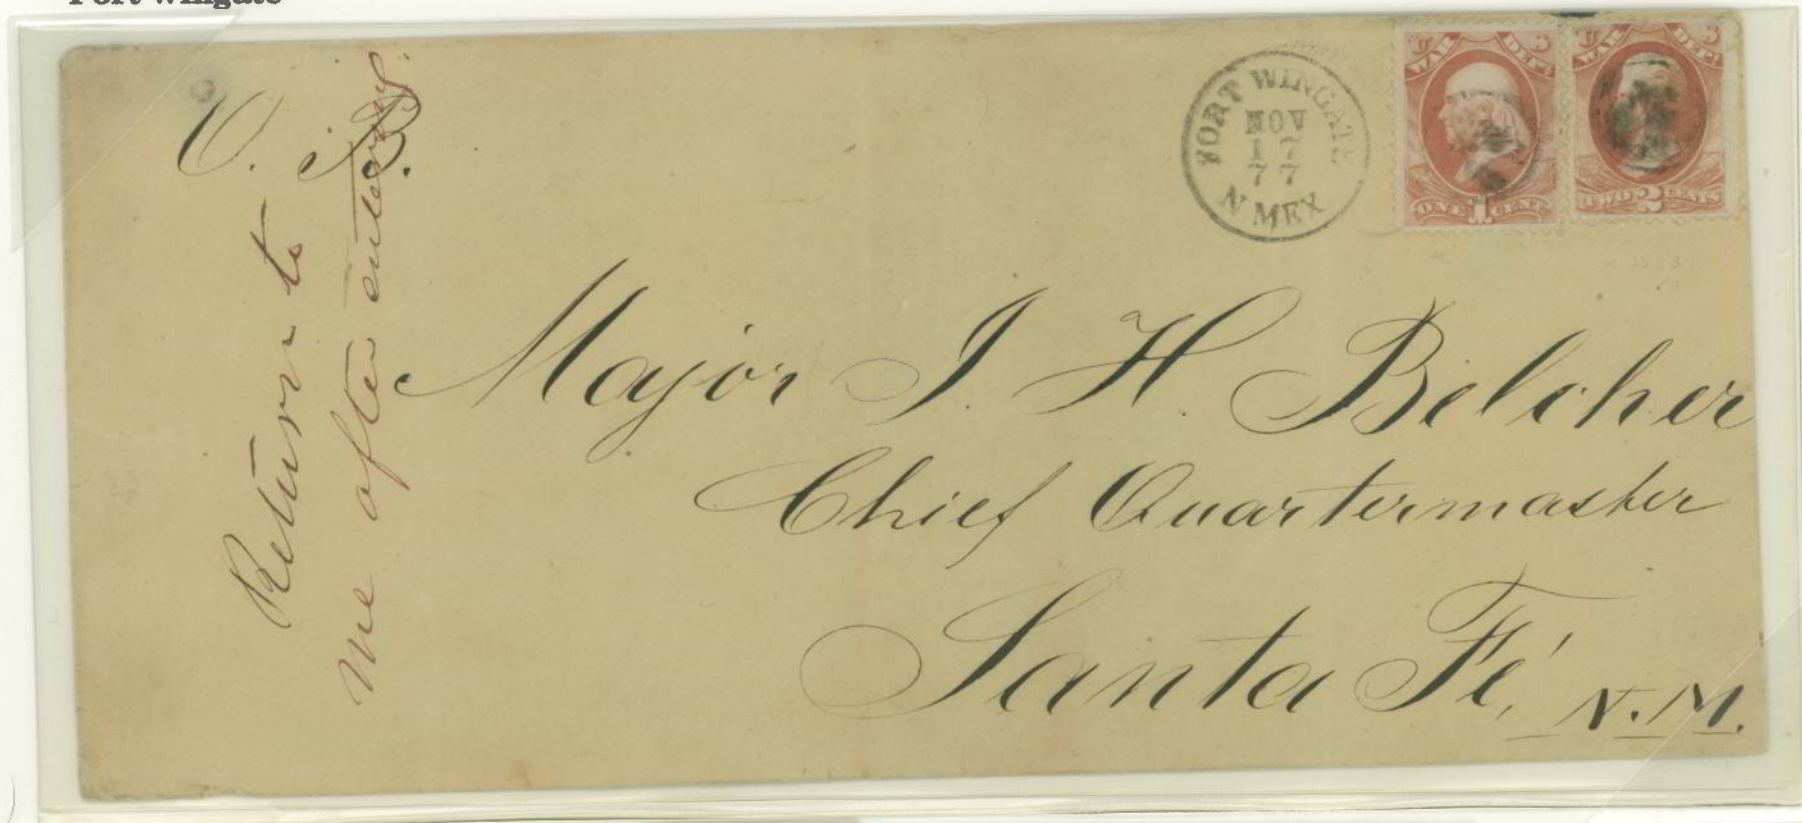 Fort Wingate
O. B.
Return to
me after entering
FORT WINGATE
NOV
17
77
N MEX
U S
WAR DEPT
ONE 1 CENT
U S
WAR DEPT
TWO 2 CENTS
Major J. H. Belcher
Chief Quartermaster
Santa Fé, N.M.